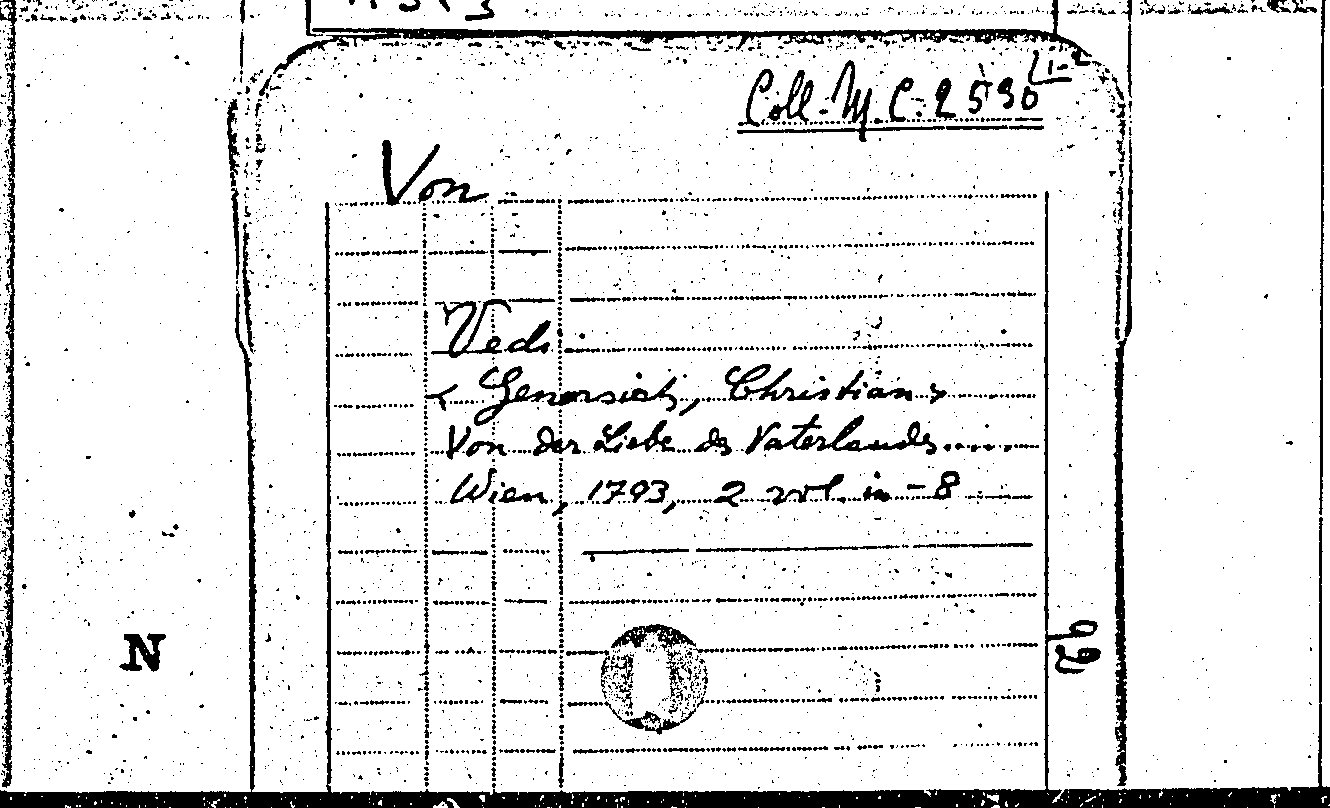 Coll. M. C. 2530 1-2
Von
Vedi:
< Genersich, Christian >
Von der Liebe des Vaterlandes.....
Wien, 1793, 2 vol. in-8
N